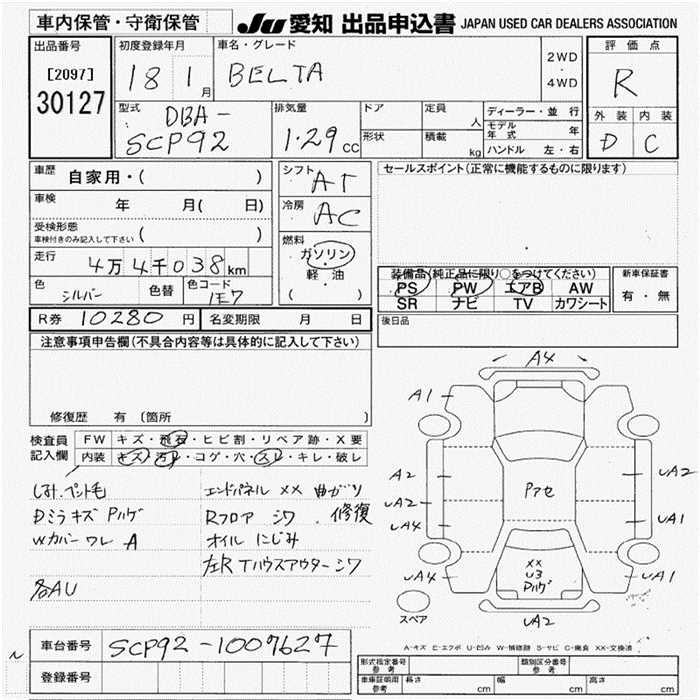 車内保管・守衛保管
JU 愛知 出品申込書 JAPAN USED CAR DEALERS ASSOCIATION
出品番号
[2097]
30127
初度登録年月
18 1月
車名・グレード
BELTA
2WD
・
4WD
評価点
R
外装 内装
D C
型式
DBA-
SCP92
排気量
1.29cc
ドア
定員
人
形状
積載
kg
ディーラー・並行
モデル年式 年
ハンドル 左・右
車歴 自家用・( )
車検 年 月( 日)
受検形態
車検付きのみ記入して下さい ( )
走行 4万4千038km
色 シルバー 色替 色コード 1E7
シフト AT
冷房 AC
燃料
ガソリン
・
軽・油
( )
セールスポイント(正常に機能するものに限ります)
装備品(純正品に限り○をつけてください)
PS PW エアB AW
SR ナビ TV カワシート
新車保証書
有・無
R券 10280円 名変期限 月 日
後日品
注意事項申告欄(不具合内容等は具体的に記入して下さい)
修復歴 有 〔箇所 〕
検査員記入欄
FW キズ・飛石・ヒビ割・リペア跡・X要
内装 キズ・汚れ・コゲ・穴・スレ・キレ・破レ
しみ.ペット毛
Dミラ キズ Pハゲ
Wカバー ワレ A
各AU
エンドパネル XX 曲がり
Rフロア シワ . 修復
オイル にじみ
左R Tハウスアウター シワ
A4
A1
A2
UA2
UA4
UA4
UA2
UA1
UA1
Pアセ
XX
U3
Pハゲ
UA2
スペア
A-キズ E-エクボ U-凹み W-補修跡 S-サビ C-腐食 XX-交換済
車台番号 SCP92-1007627
登録番号
形式指定番号 参考
類別区分番号 参考
車庫証明用 参考 長さ cm 幅 cm 高さ cm